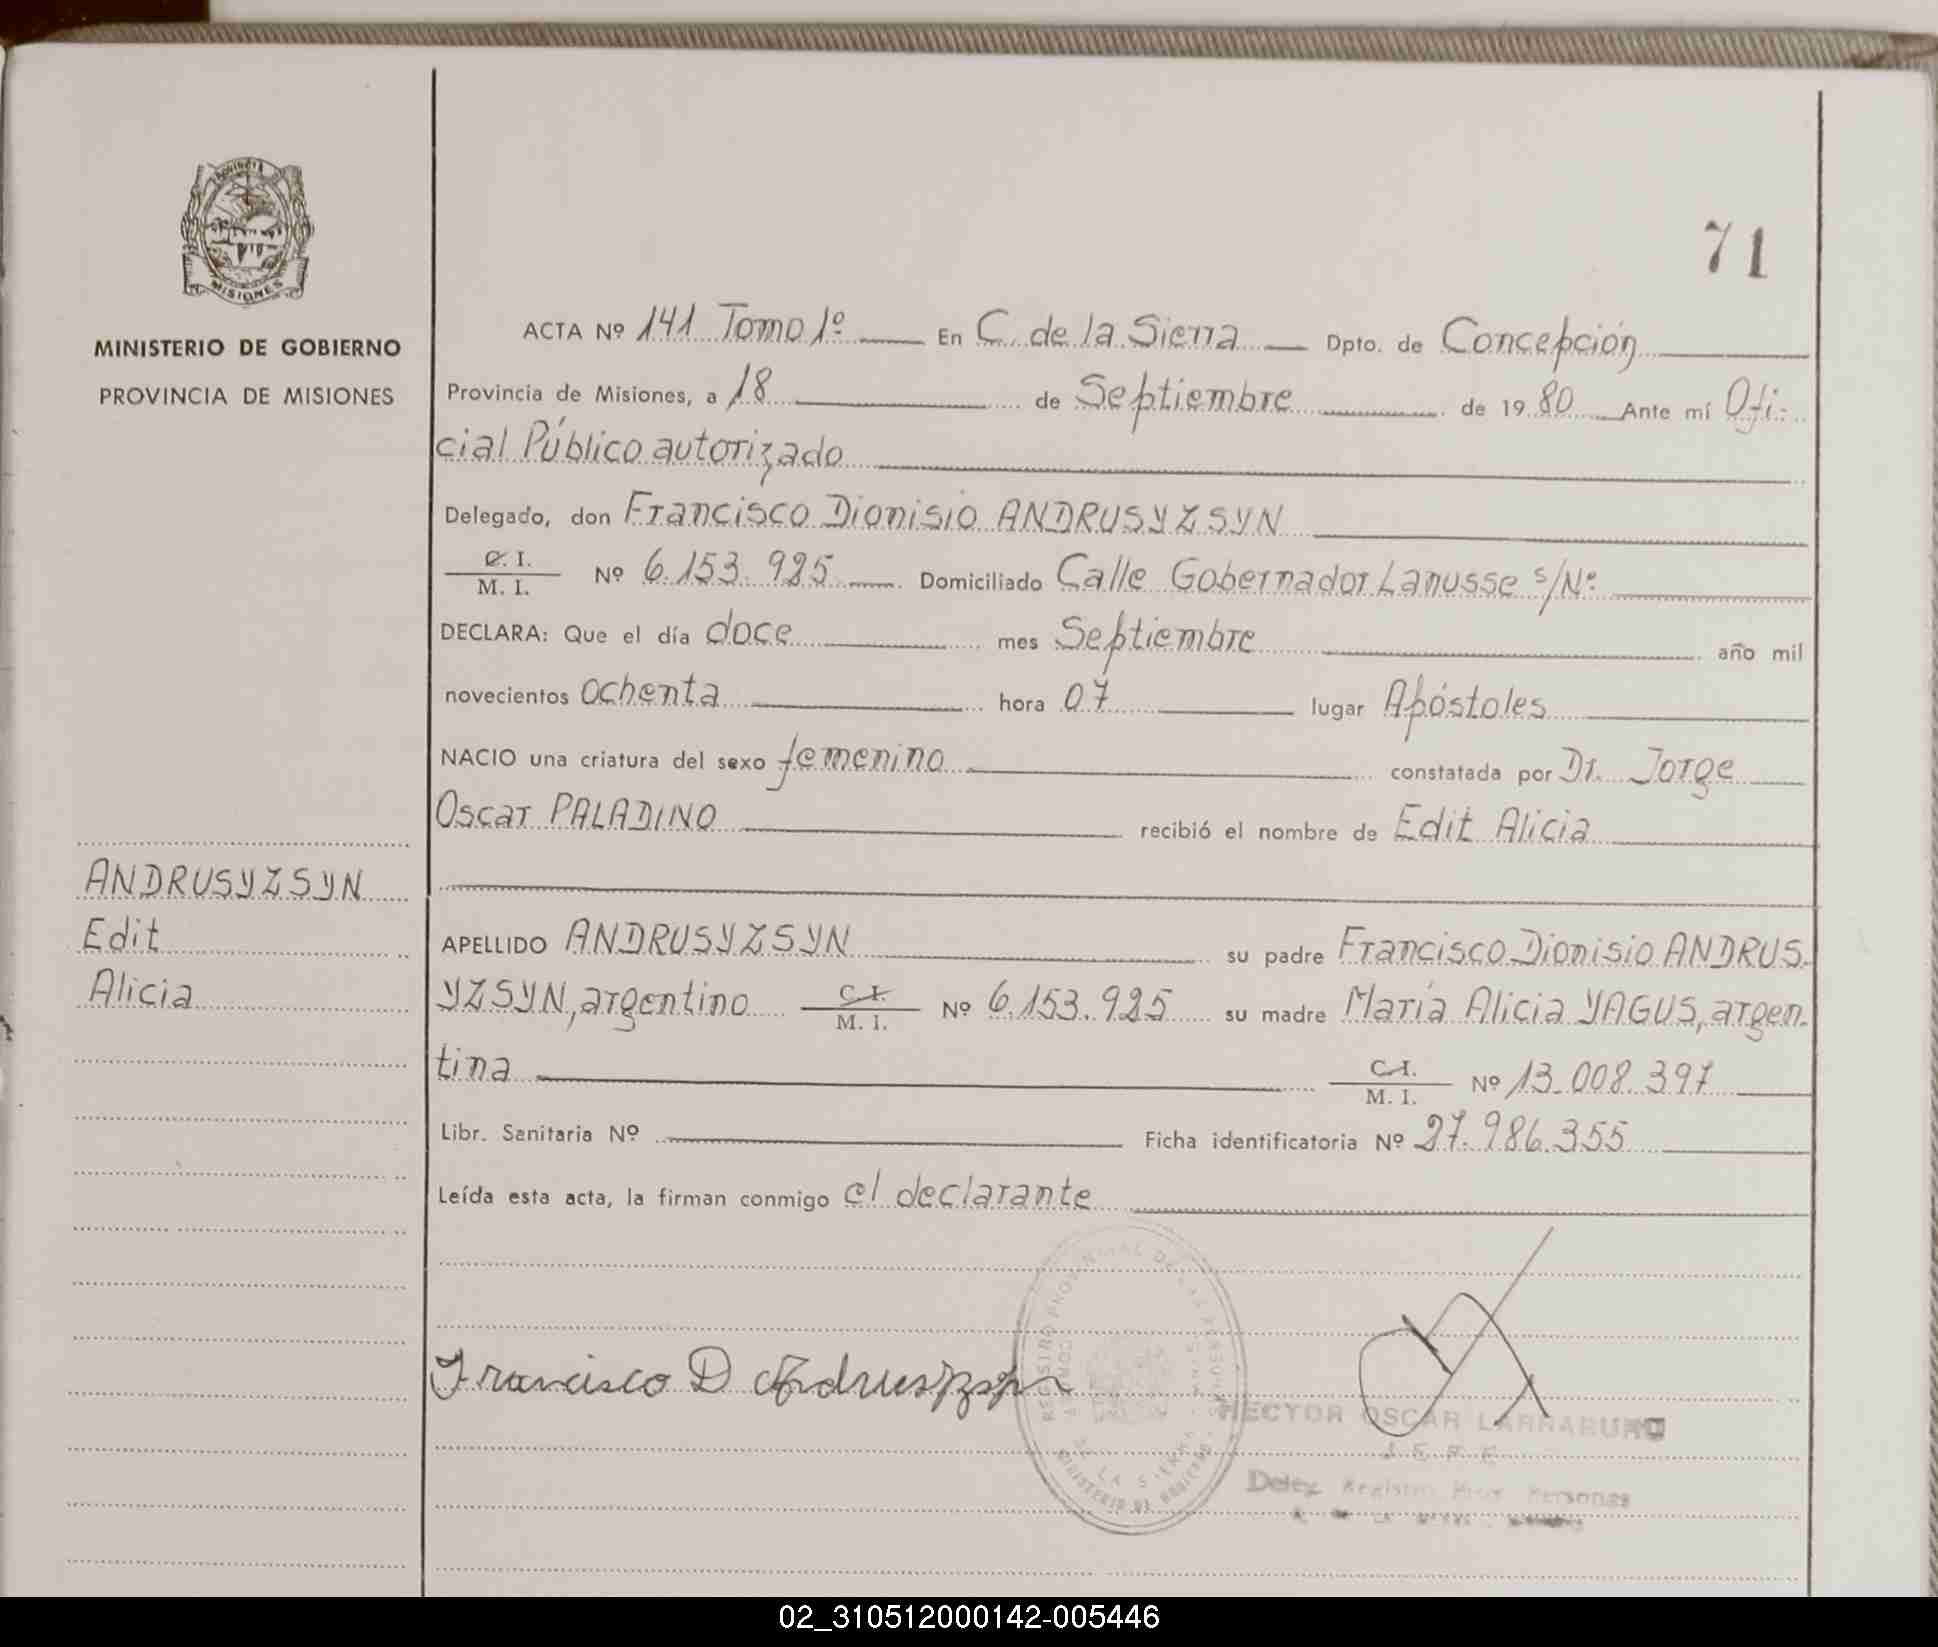 PROVINCIA
MISIONES
MINISTERIO DE GOBIERNO
PROVINCIA DE MISIONES
ANDRUSYZSYN
Edit
Alicia
71
ACTA Nº 141 Tomo 1º En C. de la Sierra Dpto. de Concepción
Provincia de Misiones, a 18 de Septiembre de 1980 Ante mí Ofi-
cial Público autorizado
Delegado, don Francisco Dionisio ANDRUSYZSYN
C. I.
M. I. Nº 6.153.925 Domiciliado Calle Gobernador Lanusse s/Nº
DECLARA: Que el día doce mes Septiembre año mil
novecientos ochenta hora 07 lugar Apóstoles
NACIO una criatura del sexo femenino constatada por Dr. Jorge
Oscar PALADINO recibió el nombre de Edit Alicia
APELLIDO ANDRUSYZSYN su padre Francisco Dionisio ANDRUS-
YZSYN, argentino C. I. M. I. Nº 6.153.925 su madre María Alicia YAGUS, argen-
tina C. I. M. I. Nº 13.008.397
Libr. Sanitaria Nº Ficha identificatoria Nº 27.986.355
Leída esta acta, la firman conmigo el declarante
Francisco D Andrusyzsyn
REGISTRO PROVINCIAL DE LAS PERSONAS
DE LA SIERRA
MINISTERIO DE GOBIERNO
HECTOR OSCAR LARRABURU
JEFE
Deleg. Registro Prov. Personas
02_310512000142-005446